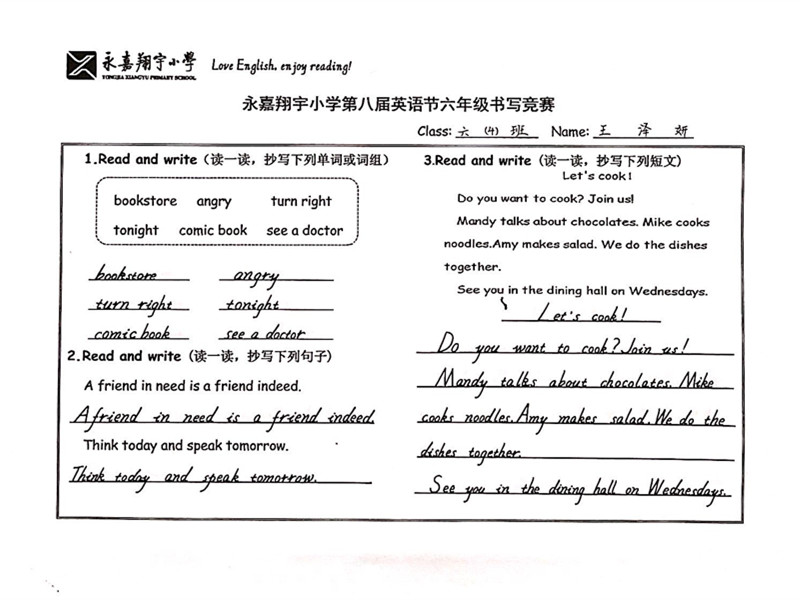 永嘉翔宇小學
YONGJIA XIANGYU PRIMARY SCHOOL
Love English, enjoy reading!
永嘉翔宇小学第八届英语节六年级书写竞赛
Class: 六 (4) 班 Name: 王 泽 妍
1.Read and write（读一读，抄写下列单词或词组）
bookstore angry turn right
tonight comic book see a doctor
bookstore angry
turn right tonight
comic book see a doctor
2.Read and write (读一读，抄写下列句子)
A friend in need is a friend indeed.
A friend in need is a friend indeed.
Think today and speak tomorrow.
Think today and speak tomorrow.
3.Read and write (读一读，抄写下列短文)
Let's cook!
Do you want to cook? Join us!
Mandy talks about chocolates. Mike cooks
noodles.Amy makes salad. We do the dishes
together.
See you in the dining hall on Wednesdays.
Let's cook!
Do you want to cook? Join us!
Mandy talks about chocolates. Mike
cooks noodles. Amy makes salad. We do the
dishes together.
See you in the dining hall on Wednesdays.